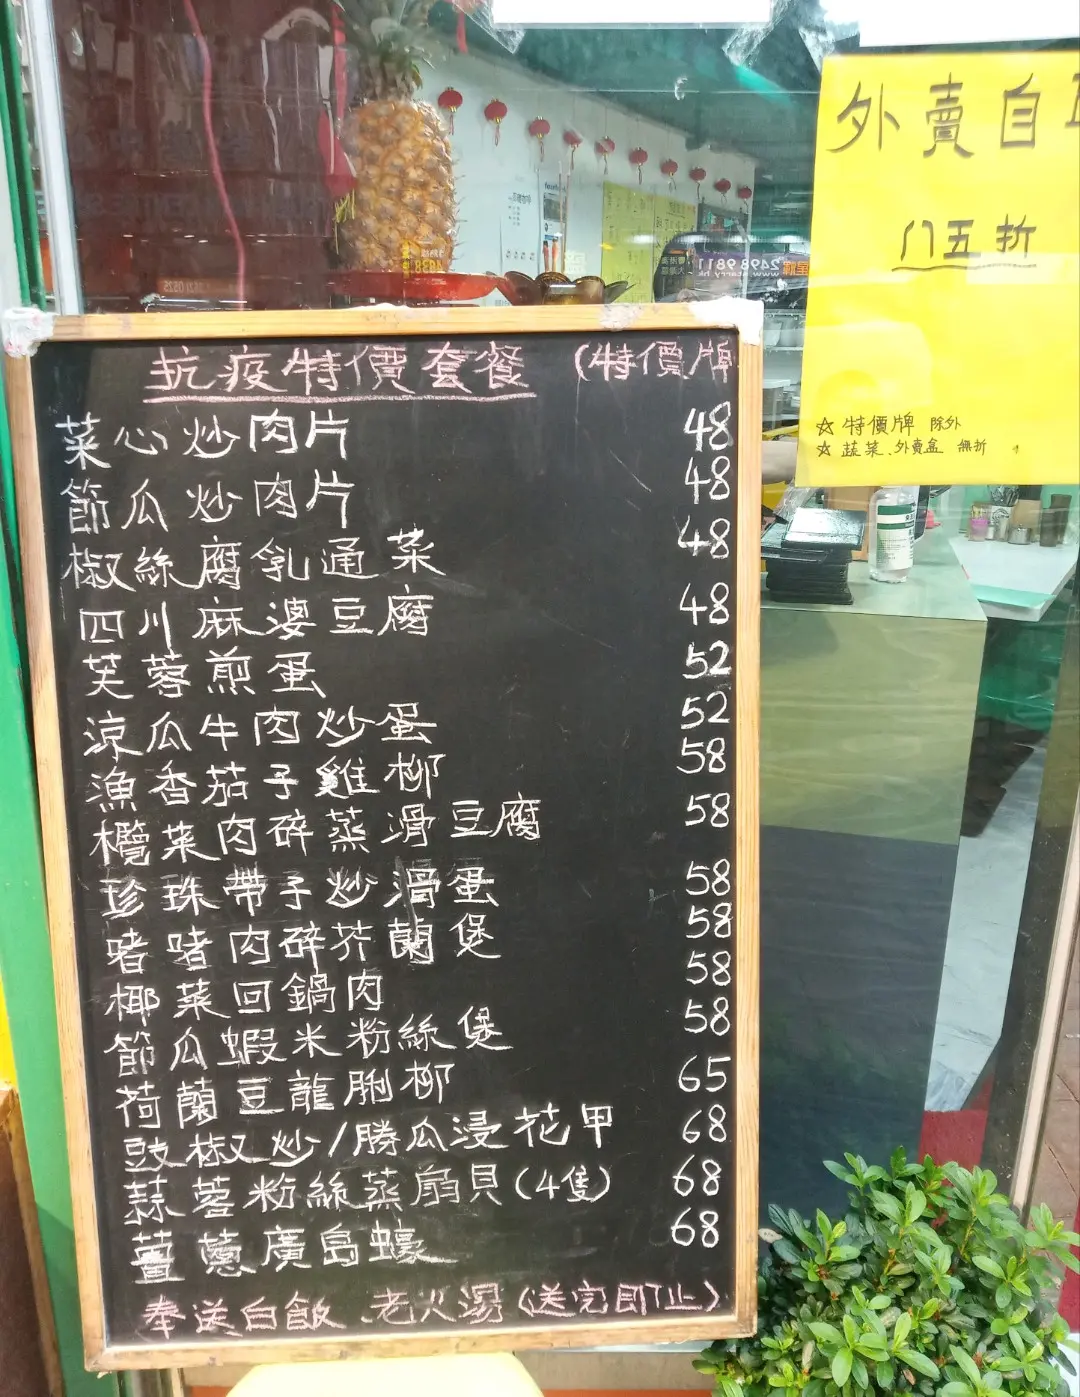 外賣自
八五折
☆ 特價牌 除外
☆ 蔬菜、外賣盒 無折
2498 9811
抗疫特價套餐 (特價牌
菜心炒肉片 48
節瓜炒肉片 48
椒絲腐乳通菜 48
四川麻婆豆腐 48
芙蓉煎蛋 52
涼瓜牛肉炒蛋 52
漁香茄子雞柳 58
欖菜肉碎蒸滑豆腐 58
珍珠帶子炒滑蛋 58
啫啫肉碎芥蘭煲 58
椰菜回鍋肉 58
節瓜蝦米粉絲煲 58
荷蘭豆龍脷柳 65
豉椒炒/勝瓜浸花甲 68
蒜蓉粉絲蒸扇貝(4隻) 68
薑蔥廣島蠔 68
奉送白飯 老火湯(送完即止)